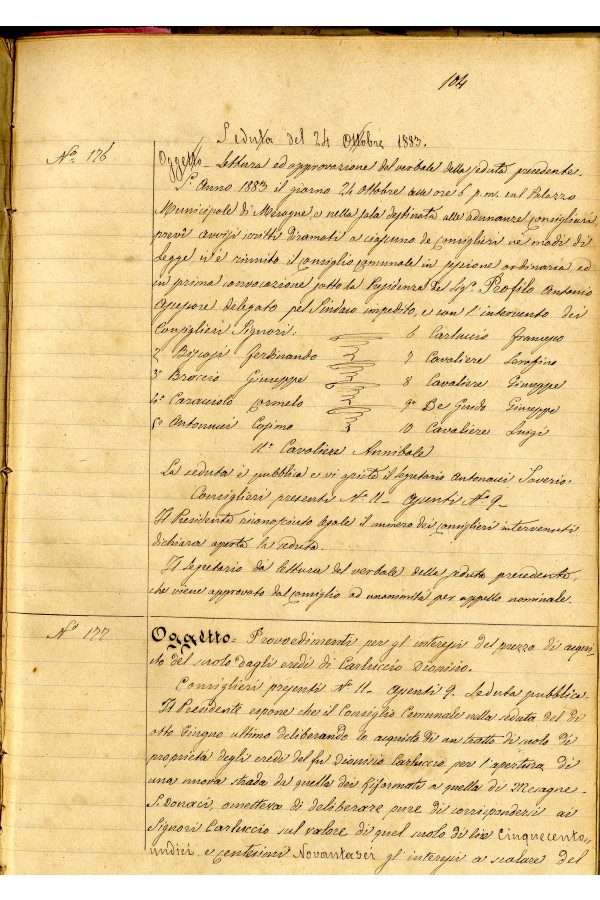 104
Seduta del 24 Ottobre 1883.
No. 176
Oggetto = Lettura ed approvazione del verbale della seduta precedente.
L'Anno 1883 il giorno 24 Ottobre alle ore 6 p.m. sul Palazzo
Municipale di Mesagne, e nella sala destinata alle adunanze consigliari
previi avvisi scritti diramati a ciascuno de Consiglieri nè modi di
Legge si è riunito il consiglio comunale in sessione ordinaria ed
in prima convocazione sotto la Presidenza del Sigr. Profilo Antonio
Assessore delegato pel Sindaco impedito, e con l'intervento dei
Consiglieri Signori:
6 Carluccio
2 Ferdinando
7 Cavaliere Serafino
3º Broccio Giuseppe
8 Cavaliere Giuseppe
4º
9º De Guido Giuseppe
5º Antonucci Cosimo
10 Cavaliere Luigi
11º Cavaliere Annibale
La seduta è pubblica e vi assiste il Segretario Antonucci Saverio.
Consiglieri presenti No. 11 - Assenti No 9 -
Il Presidente riconosciuto legale il numero dei consiglieri intervenuti
dichiara aperta la seduta.
Il Segretario dà lettura del verbale della seduta precedente,
che viene approvato dal consiglio ad unanimità per appello nominale.
No 177
Oggetto = Provvedimenti per gl'interessi del prezzo di acqui-
sto del suolo dagli eredi di Carluccio Dionisio.
Consiglieri presenti No. 11 - Assenti 9. Seduta pubblica -
Il Presidente espone che il Consiglio Comunale nella seduta del Di
otto Giugno ultimo deliberando lo acquisto di un tratto di suolo di
proprietà degli eredi del fu Dionisio Carluccio per l'apertura di
una nuova strada da quella dei Riformati a quella di Mesagne -
S. Donaci, ometteva di deliberare pure di corrispondersi ai
Signori Carluccio sul valore di quel suolo di lire Cinquecento„
undici e centesimi Novantasei gl'interessi a scalare del